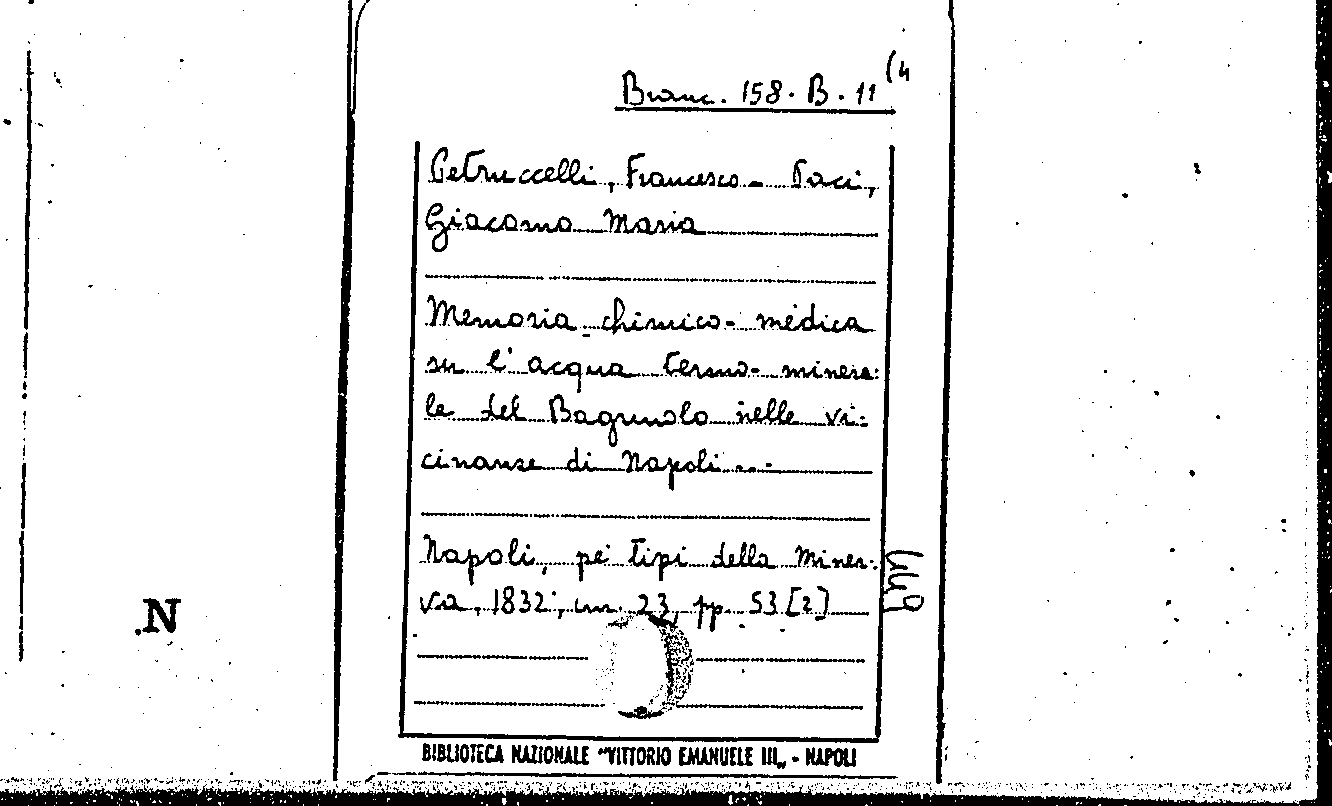 Branc. 158. B. 11 (4
Petruccelli, Francesco - Paci,
Giacomo Maria
Memoria chimico-medica
su l'acqua termo-minera:
le del Bagnuolo nelle vi:
cinanze di Napoli...
Napoli, pei tipi della Miner:
va, 1832, cm. 23, pp. 53 [2]
N
BIBLIOTECA NAZIONALE "VITTORIO EMANUELE III„ - NAPOLI